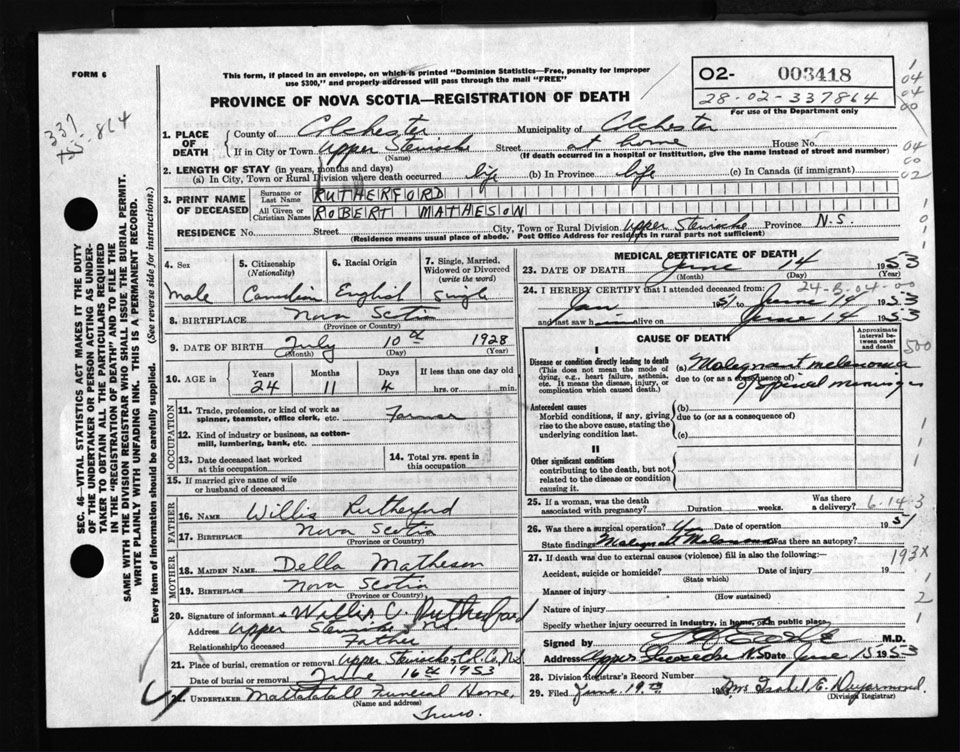 FORM 6
This form, if placed in an envelope, on which is printed "Dominion Statistics—Free, penalty for improper
use $300," and properly addressed will pass through the mail "FREE"
PROVINCE OF NOVA SCOTIA—REGISTRATION OF DEATH
02- 003418
28-02-337864
For use of the Department only
337
864
04
04
00
04
00
02
1. PLACE OF DEATH
County of Colchester Municipality of Colchester
If in City or Town Upper Stewiacke Street at home House No.
(Name) (If death occurred in a hospital or institution, give the name instead of street and number)
2. LENGTH OF STAY (in years, months and days)
(a) In City, Town or Rural Division where death occurred life (b) In Province life (c) In Canada (if immigrant)
3. PRINT NAME OF DECEASED
Surname or Last Name RUTHERFORD
All Given or Christian Names ROBERT MATHESON
RESIDENCE No. Street City, Town or Rural Division Upper Stewiacke Province N.S.
(Residence means usual place of abode. Post Office Address for residents in rural parts not sufficient)
SEC. 46—VITAL STATISTICS ACT MAKES IT THE DUTY
OF THE UNDERTAKER OR PERSON ACTING AS UNDER-
TAKER TO OBTAIN ALL THE PARTICULARS REQUIRED
IN THE "REGISTRATION OF DEATH" AND TO FILE THE
SAME WITH THE DIVISION REGISTRAR WHO SHALL ISSUE THE BURIAL PERMIT.
WRITE PLAINLY WITH UNFADING INK. THIS IS A PERMANENT RECORD.
Every item of information should be carefully supplied. (See reverse side for instructions.)
4. Sex
5. Citizenship
(Nationality)
6. Racial Origin
7. Single, Married,
Widowed or Divorced
(write the word)
Male Canadian English Single
8. BIRTHPLACE Nova Scotia
(Province or Country)
9. DATE OF BIRTH July 10th 1928
(Month) (Day) (Year)
10. AGE in
Years Months Days If less than one day old
24 11 4 hrs. or min.
OCCUPATION
11. Trade, profession, or kind of work as
spinner, teamster, office clerk, etc. Farmer
12. Kind of industry or business, as cotton-
mill, lumbering, bank, etc.
13. Date deceased last worked
at this occupation
14. Total yrs. spent in
this occupation
15. If married give name of wife
or husband of deceased
FATHER
16. NAME Willis Rutherford
17. BIRTHPLACE Nova Scotia
(Province or Country)
MOTHER
18. MAIDEN NAME Della Matheson
19. BIRTHPLACE Nova Scotia
(Province or Country)
20. Signature of informant Willis C. Rutherford
Address Upper Stewiacke N.S.
Relationship to deceased Father
21. Place of burial, cremation or removal Upper Stewiacke Col. Co. N.S.
Date of burial or removal June 16th 1953
22. UNDERTAKER Mattatall Funeral Home,
(Name and address)
Truro.
MEDICAL CERTIFICATE OF DEATH
23. DATE OF DEATH June 14 1953
(Month) (Day) (Year)
24. I HEREBY CERTIFY that I attended deceased from:
24-B-04-00
Jan 1951 to June 14 1953
and last saw him alive on June 14 1953
CAUSE OF DEATH
Approximate
interval be-
tween onset
and death
I
Disease or condition directly leading to death
(This does not mean the mode of
dying, e.g., heart failure, asthenia,
etc. It means the disease, injury, or
complication which caused death.)
(a) Malignant melanoma
due to (or as a consequence of) of spinal meninges
500
Antecedent causes
Morbid conditions, if any, giving
rise to the above cause, stating the
underlying condition last.
(b)
due to (or as a consequence of)
(c)
II
Other significant conditions
contributing to the death, but not
related to the disease or condition
causing it.
25. If a woman, was the death
associated with pregnancy? Duration weeks. Was there
a delivery?
6-14-3
26. Was there a surgical operation? Yes Date of operation 1951
State findings Malignant Melanoma Was there an autopsy?
193X
27. If death was due to external causes (violence) fill in also the following:—
Accident, suicide or homicide? Date of injury 19
(State which)
Manner of injury
(How sustained)
Nature of injury
2
Specify whether injury occurred in industry, in home, or in public place
Signed by M.D.
Address Upper Stewiacke N.S. Date June 15 1953
28. Division Registrar's Record Number
29. Filed June 19th 19 Mrs Isabel E. Dejarmond.
(Division Registrar)